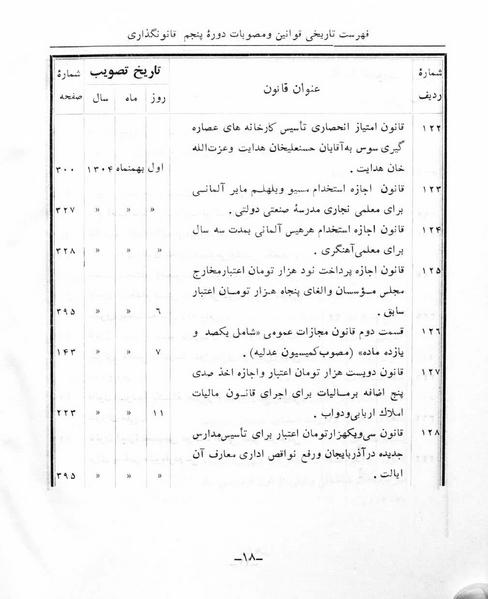 فهرست تاریخی قوانین ومصوبات دورهٔ پنجم قانونگذاری
شمارهٔ ردیف عنوان قانون تاریخ تصویب شمارهٔ صفحه
روز ماه سال
۱۲۲ قانون امتیاز انحصاری تأسیس کارخانه های عصاره
گیری سوس به آقایان حسنعلیخان هدایت وعزت‌الله
خان هدایت . اول بهمنماه ۱۳۰۴ ۳۰۰
۱۲۳ قانون اجازه استخدام مسیو ویلهلم مایر آلمانی
برای معلمی نجاری مدرسهٔ صنعتی دولتی . » » » ۳۲۷
۱۲۴ قانون اجازه استخدام هرهیس آلمانی بمدت سه سال
برای معلمی آهنگری . » » » ۳۲۸
۱۲۵ قانون اجازه پرداخت نود هزار تومان اعتبارمخارج
مجلس مؤسسان والغای پنجاه هزار تومان اعتبار
سابق . ۶ » » ۳۹۵
۱۲۶ قسمت دوم قانون مجازات عمومی «شامل یکصد و
یازده ماده» (مصوب کمیسیون عدلیه) . ۷ » » ۱۴۳
۱۲۷ قانون دویست هزار تومان اعتبار واجازه اخذ صدی
پنج اضافه برمالیات برای اجرای قانون مالیات
املاك اربابی ودواب . ۱۱ » » ۲۲۳
۱۲۸ قانون سی ویکهزارتومان اعتبار برای تأسیس مدارس
جدیده درآذربایجان ورفع نواقص اداری معارف آن
ایالت . » » » ۳۹۵
–۱۸–